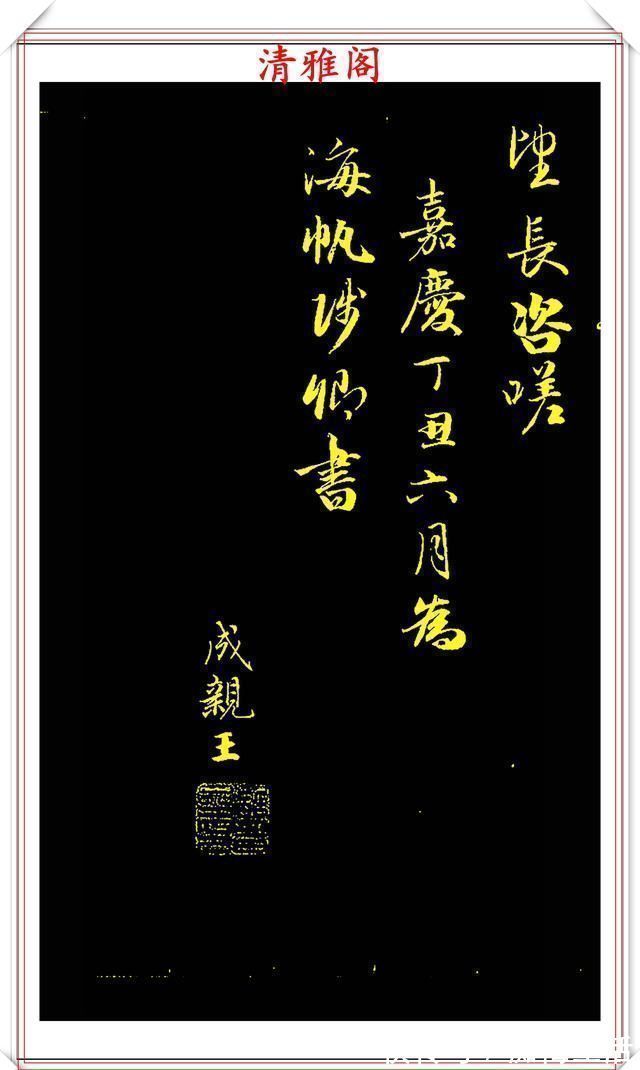 清雅阁
望長咨嗟
嘉慶丁丑六月為
海帆侍卿書
成親王